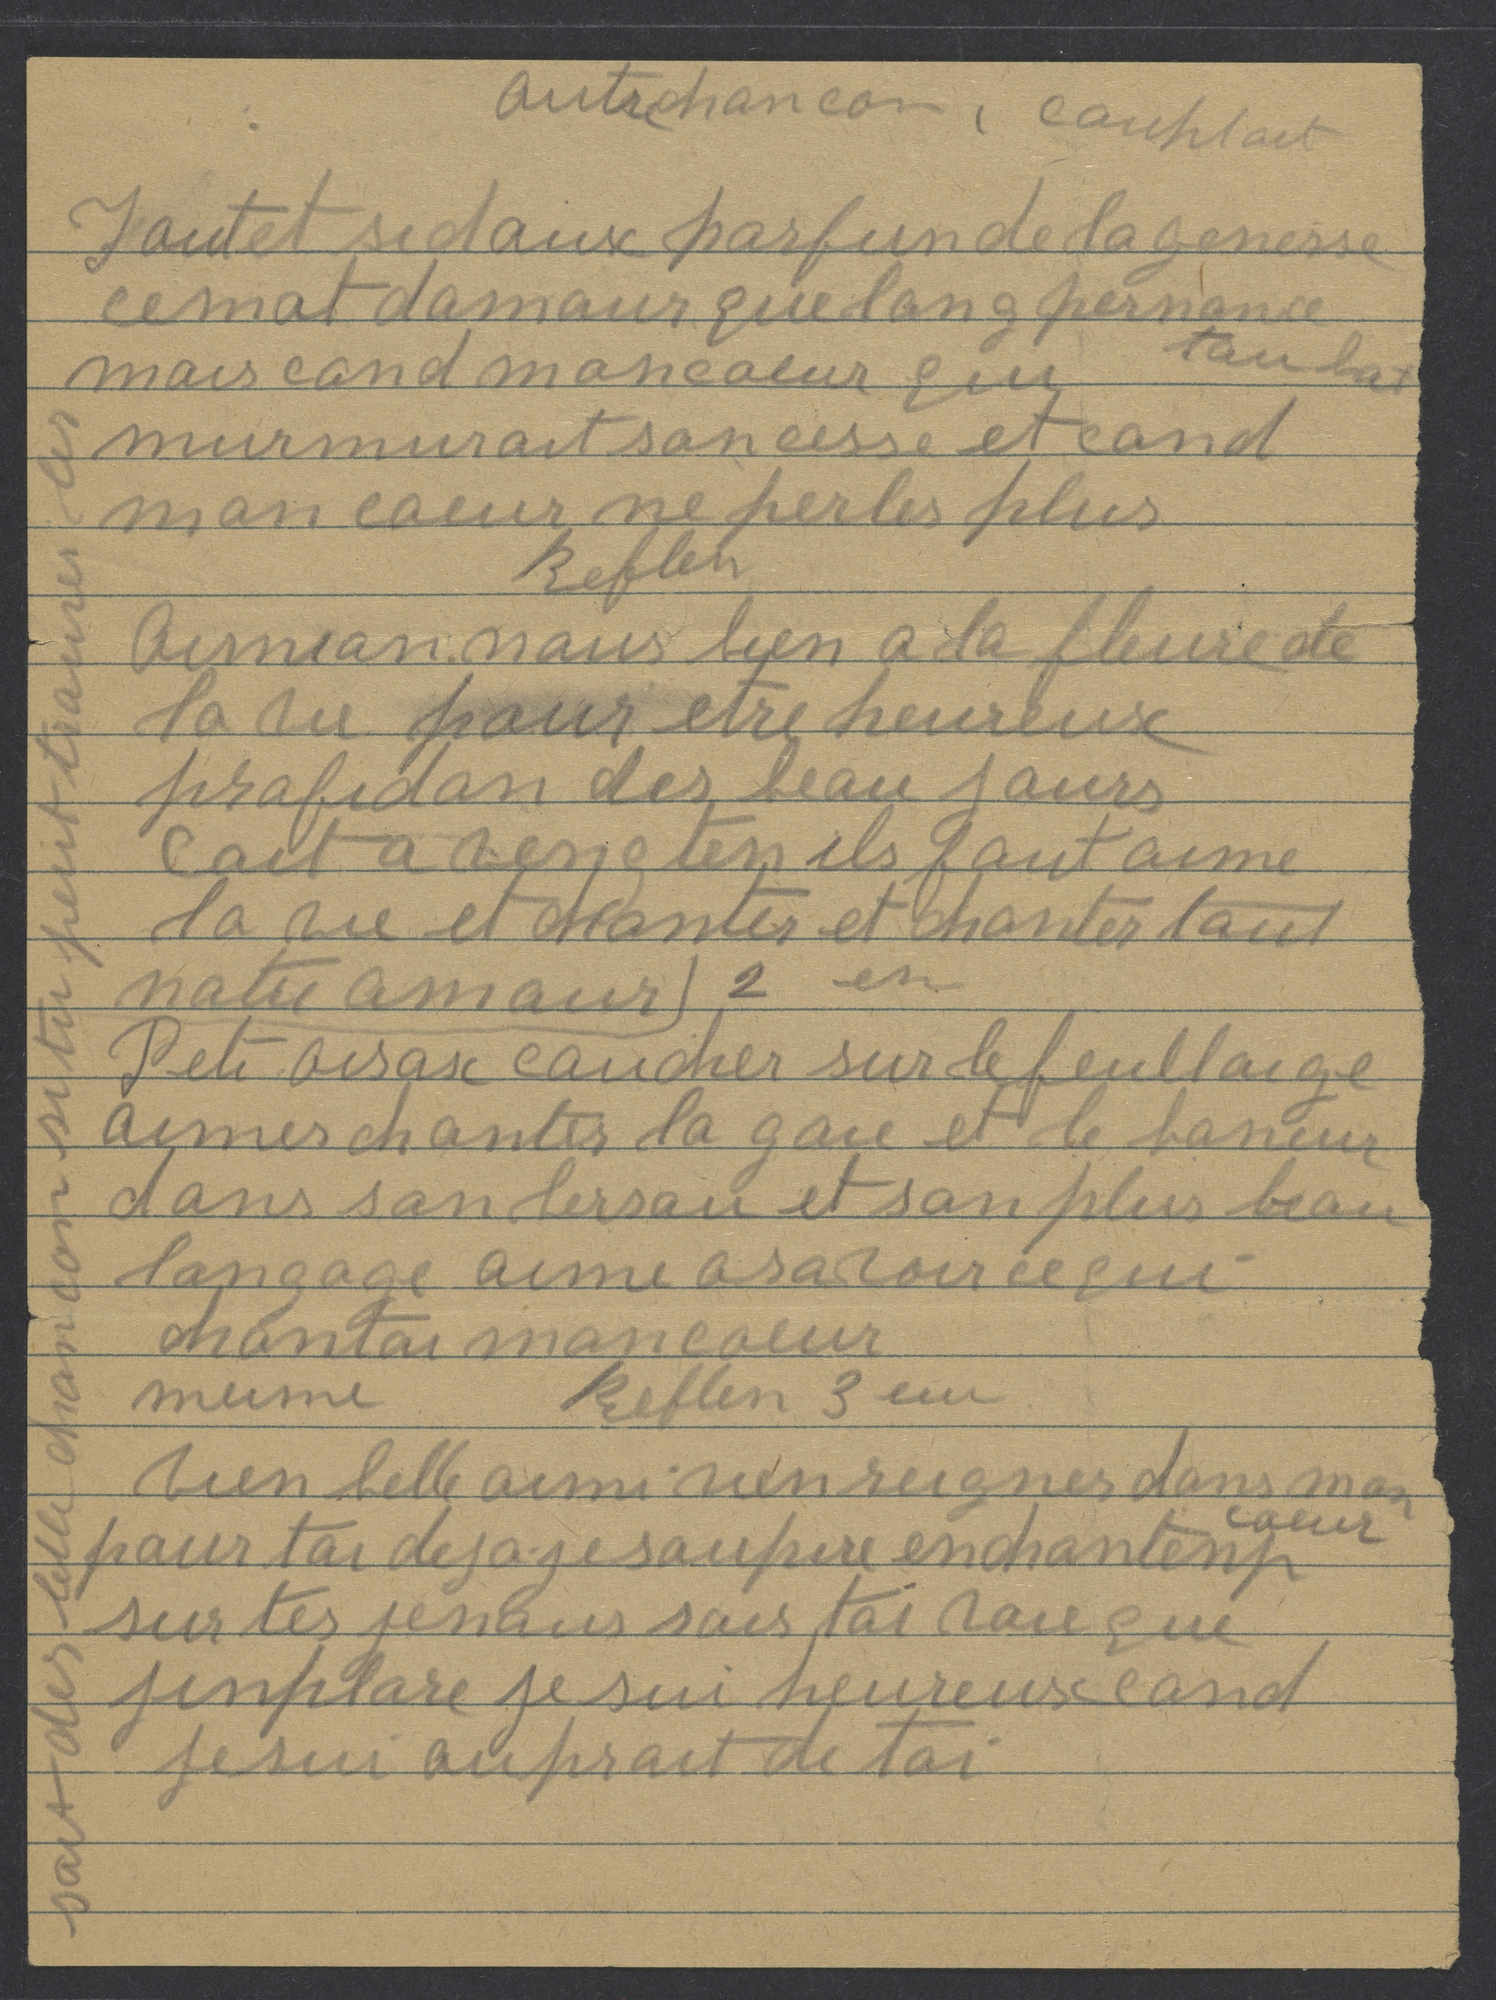 autre chancon, couplait
Tout et si daux parfun de la genesse
ce mot damour que lon g pernonce
tau bat
mais cand mon coeur qui
murmurait san cesse et cand
mon coeur ne perles plus
Reflen
Aimian nous bien a la fleure de
la vie pour etre heureux
profidan des beau jours
Cait a veng ten ils faut aime
la vie et chanter et chanter tout
notre amour) 2 en
Peti oisax coucher sur le feullaige
aimes chanter la gaie et le boneur
dans son bersau et son plus beau
langage aime a savoir ce qui
chantai mon coeur
meime Reflen 3 em
vien belle aimi vien reigner dans mon
coeur
pour toi deja je soupire en chantenp
sur tes jenous sois toi voie que
jinplore je sui heureux cand
je sui auprait de toi
sait des belle chancon si tu peut traurer les